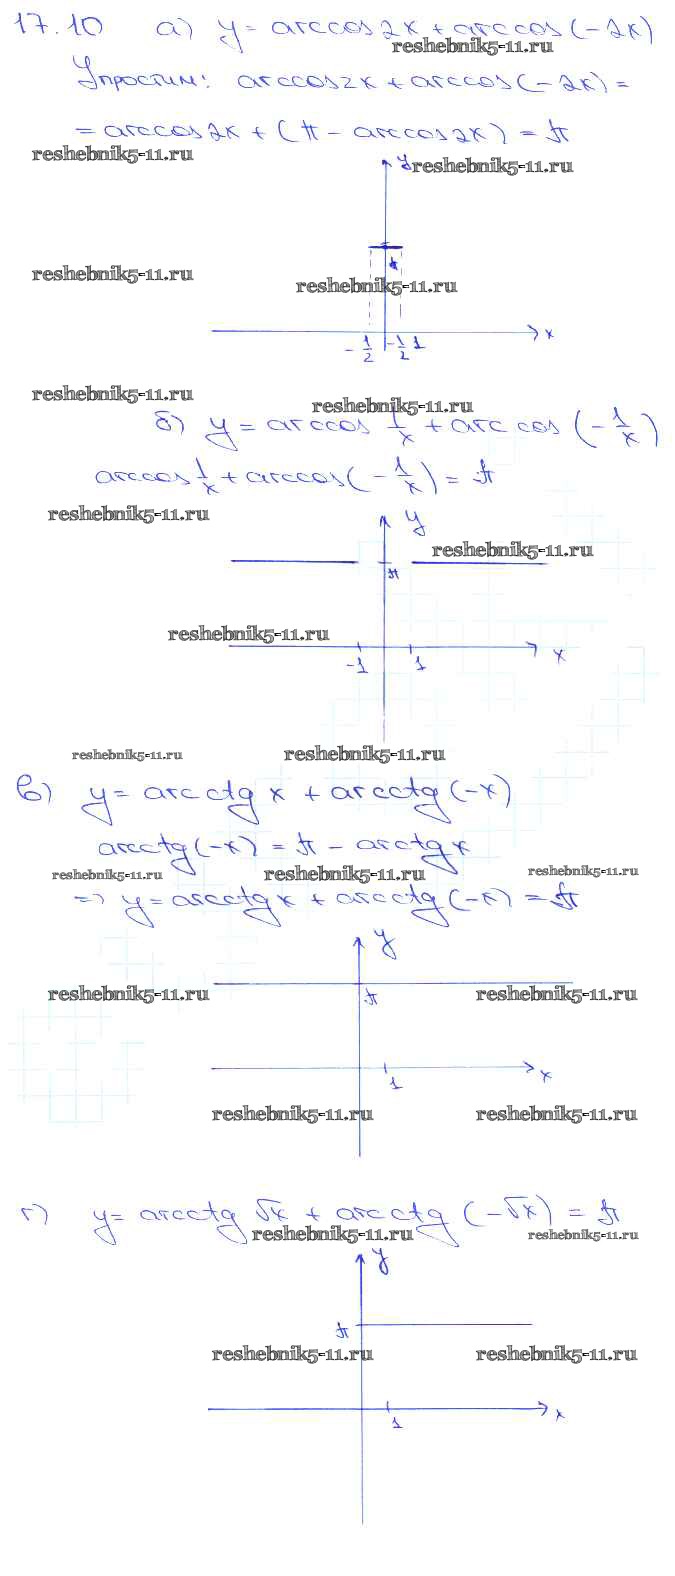 17.10 а) y = arccos 2x + arccos (-2x)
reshebnik5-11.ru
Упростим: arccos 2x + arccos (-2x) =
= arccos 2x + (π - arccos 2x) = π
reshebnik5-11.ru
y reshebnik5-11.ru
reshebnik5-11.ru
reshebnik5-11.ru
x
-1/2 -1/2 1
reshebnik5-11.ru
reshebnik5-11.ru
б) y = arccos 1/x + arccos (-1/x)
arccos 1/x + arccos (-1/x) = π
reshebnik5-11.ru
y
reshebnik5-11.ru
π
reshebnik5-11.ru
-1 1 x
reshebnik5-11.ru reshebnik5-11.ru
в) y = arcctg x + arcctg (-x)
arcctg (-x) = π - arctg x
reshebnik5-11.ru reshebnik5-11.ru reshebnik5-11.ru
=> y = arcctg x + arcctg (-x) = π
y
reshebnik5-11.ru π reshebnik5-11.ru
x
1
reshebnik5-11.ru reshebnik5-11.ru
г) y = arcctg √x + arcctg (-√x) = π
reshebnik5-11.ru reshebnik5-11.ru
y
π
reshebnik5-11.ru reshebnik5-11.ru
x
1